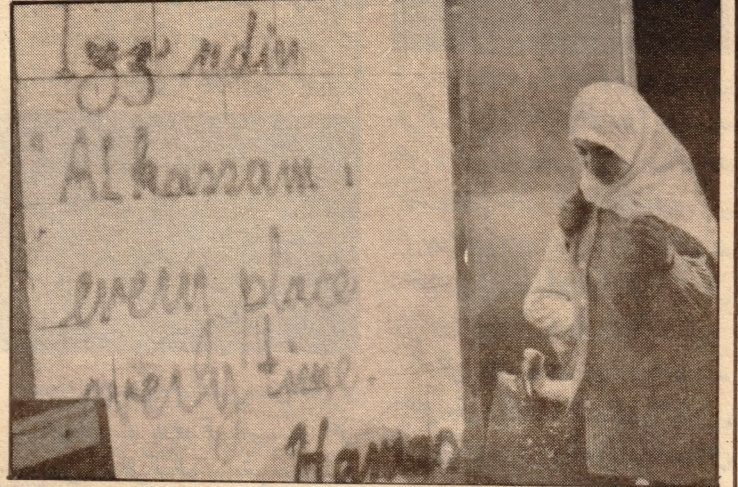 Izz' ndin
"Al kassam"
every place
every time.
Hamas